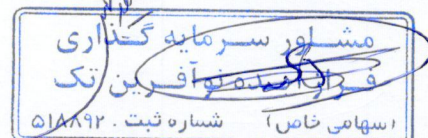 مشاور سرمایه گذاری
فراز ایده نوآفرین تک
(سهامی خاص) شماره ثبت . ۵۱۸۸۹۲